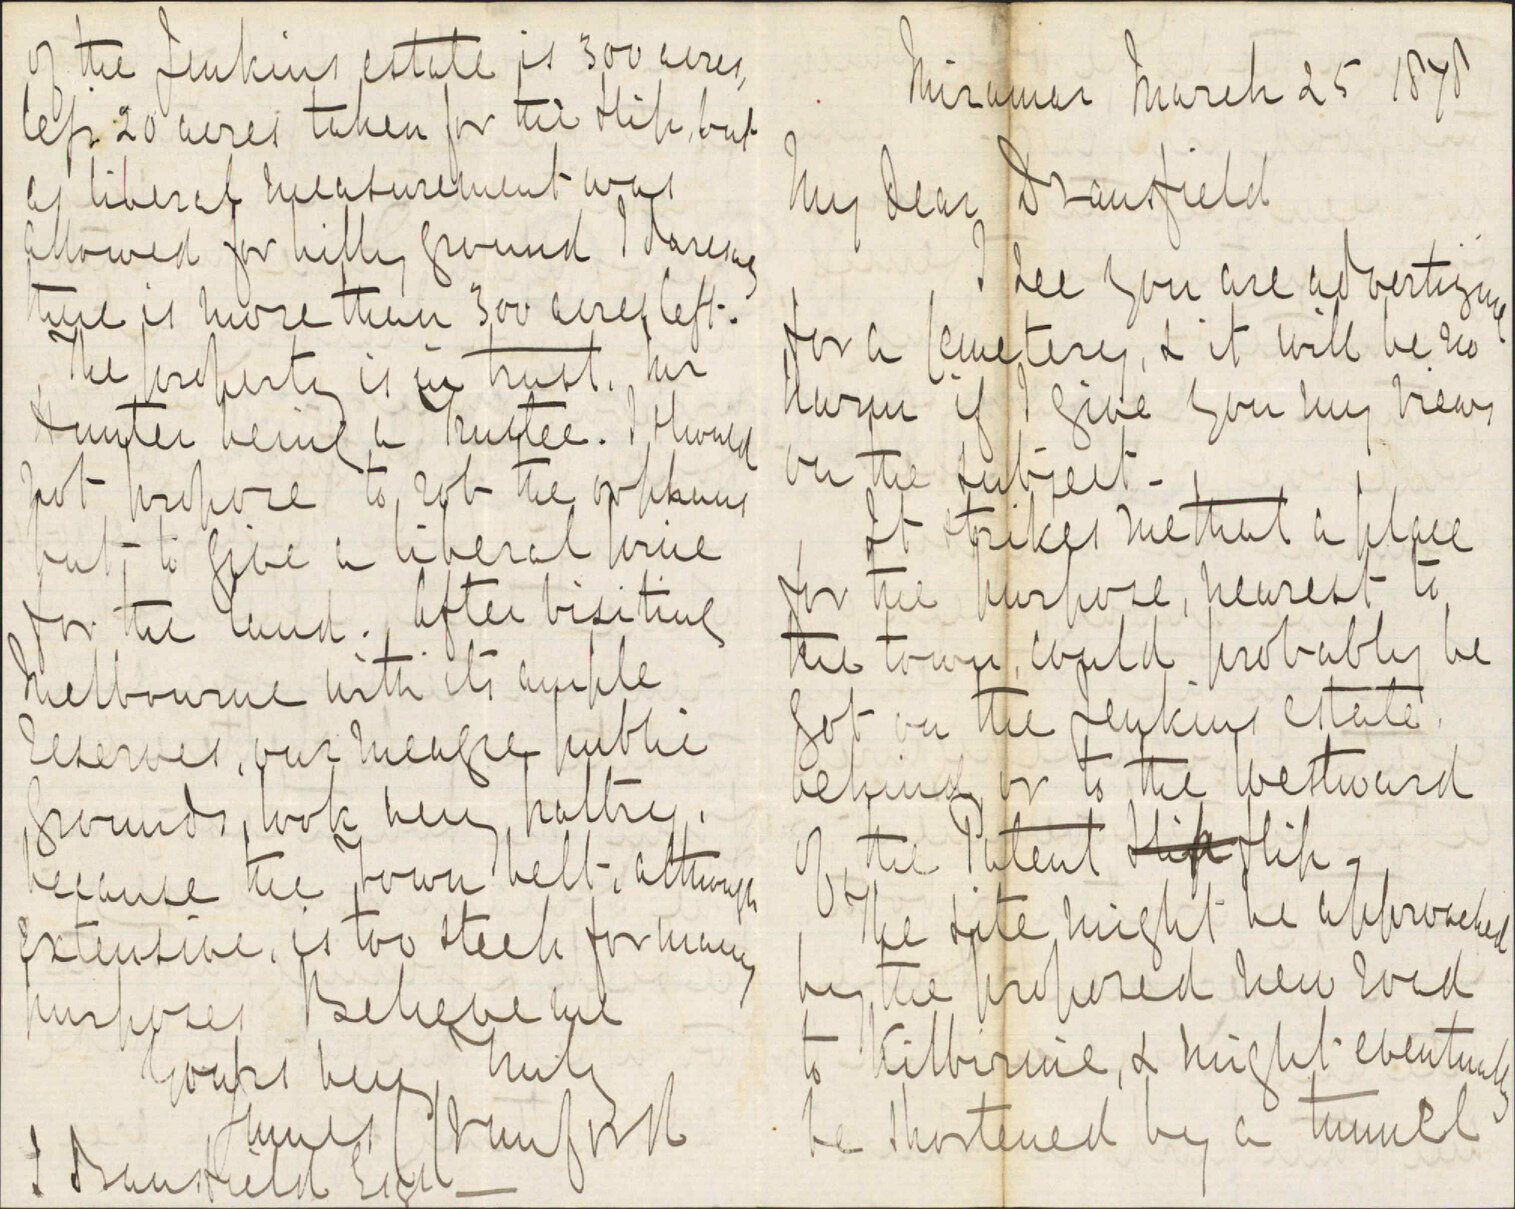 Miramar March 25 1878
My dear Dransfield
I see you are advertizing
for a Cemetery, & it will be no
harm if I give you my views
on the subject -
It strikes me that a place
for the purpose, nearest to
the town, could probably be
got on the Jenkins estate,
behind, or to the westward
of the Patent Slip Slip -
The site might be approached
by the proposed new road
to Kilbirnie, & might eventually
be shortened by a tunnel
of the Jenkins estate is 300 acres,
less 20 acres taken for the Slip, but
as liberal measurement was
allowed for hilly ground I daresay
there is more than 300 acres left.
The property is in trust, Mr
Hunter being a Trustee. I should
not propose to rob the orphans
but to give a liberal price
for the land. After visiting
Melbourne with its ample
reserves, our meagre public
grounds, look very paltry,
because the Town belt, although
extensive, is too steep for many
purposes Believe me
Yours very truly
James C Crawford
J Dransfield Esqr —